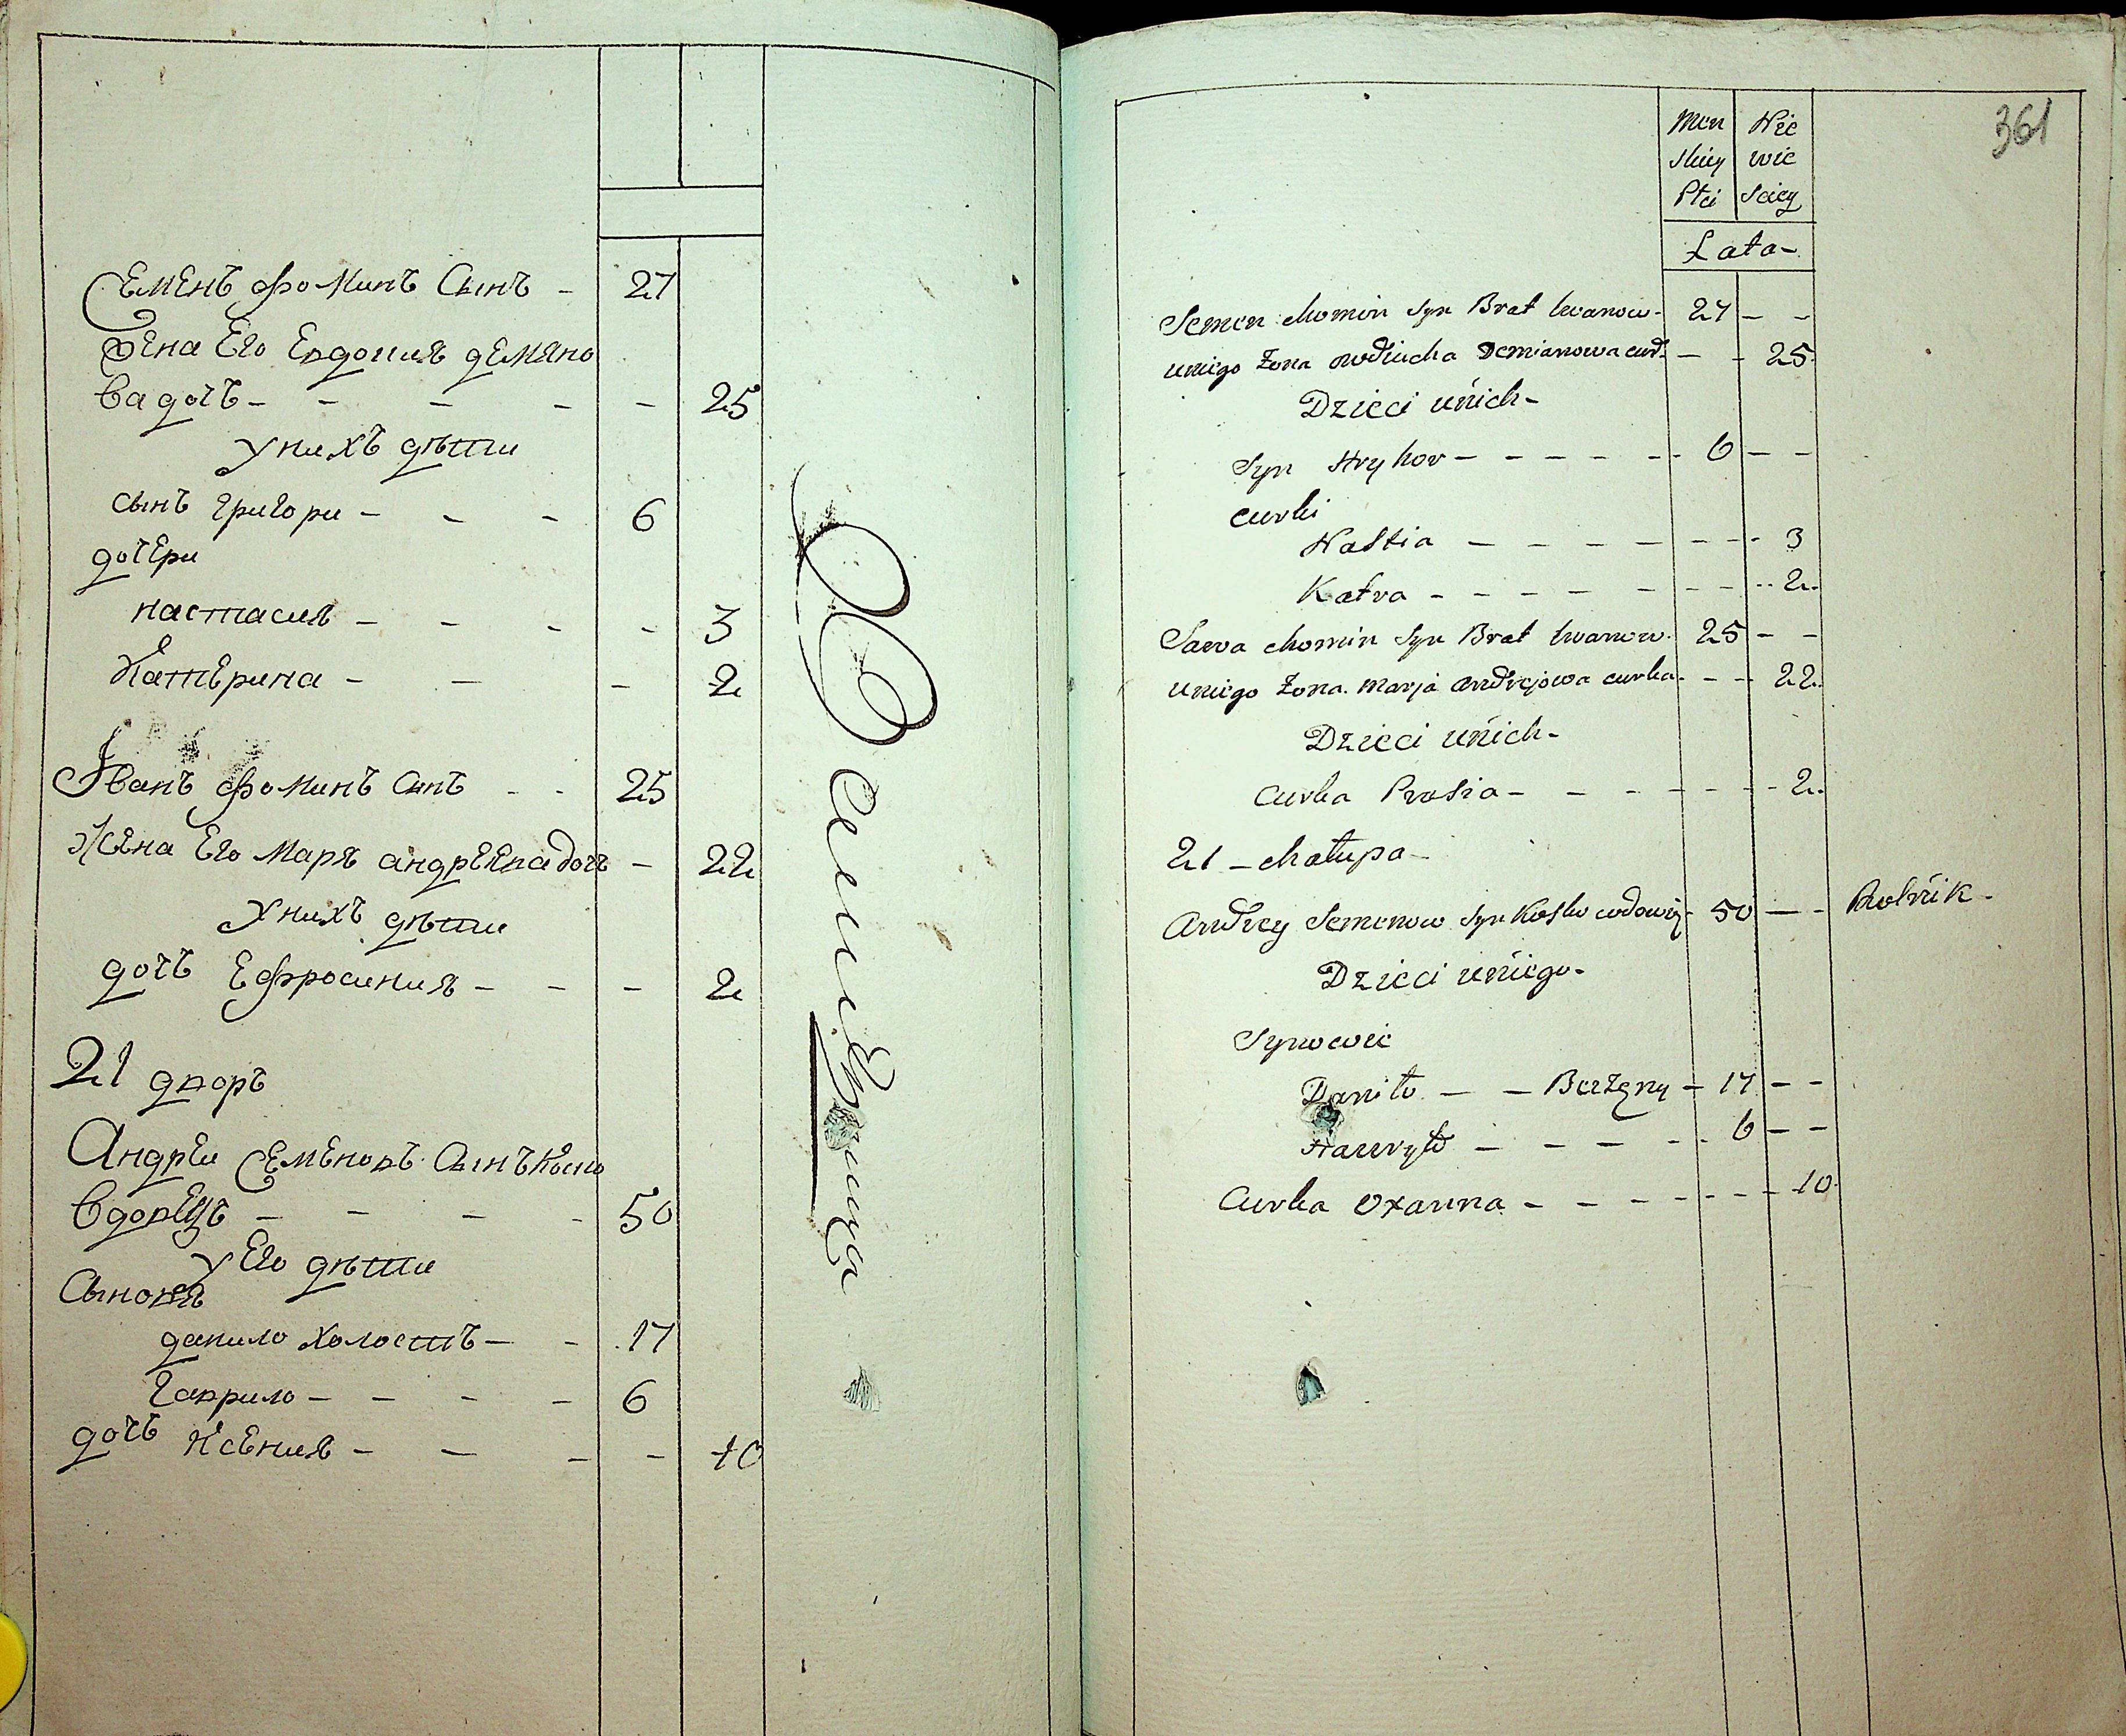 Семенъ Фоминъ Сынъ - 27
Жена Его Евдокия демяно
ва дочъ - - - - - 25
у нихъ дѣти
сынъ григори - - - 6
дочери
настасия - - - - 3
Катерина - - - 2
Іванъ Фоминъ Сынъ - - 25
Жена Его Маря андреева дочъ - 22
У нихъ дѣти
дочъ Ефросиния - - - 2
21 дворъ
Андреи Семеновъ Сынъ Коско
вдовецъ - - - - 50
у Его дѣти
Сыновя
данило холостъ - - 17
гаврило - - - - 6
дочъ Ксения - - - - 10
361
Men Nie
skiey wie
Płci sciey
Lata -
Semen Chomin Syn Brat Iwanow - 27 - -
uniego Żona Owdiucha Demianowa cur. - - 25
Dzieci unich -
Syn Hryhor - - - - - - 6 - -
curki
Nastia - - - - - - - 3
Katra - - - - - - - 2
Sawa Chomin Syn Brat Iwanow - 25 - -
uniego Żona Marja Andrejowa curka - - - 22
Dzieci unich -
Curka Prosia - - - - - - - 2
21 - Chałupa -
Andrey Semenow Syn Kosko wdowiec - 50 - - Rolnik -
Dzieci uniego -
Synowie
Daniło - - Bezżęny - 17 - -
Hawryło - - - - - 6 - -
Curka Oxanna - - - - - - - 10